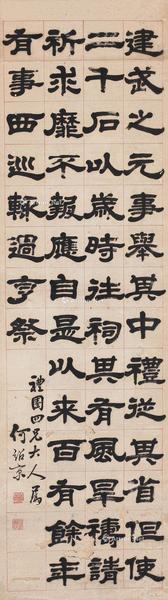 建武之元事舉其中禮從其省但使
二千石以歲時往祠其有風旱禱請
祈求靡不報應自是以來百有餘年
有事西巡輒過亨祭
禮園四兄大人屬
何紹京